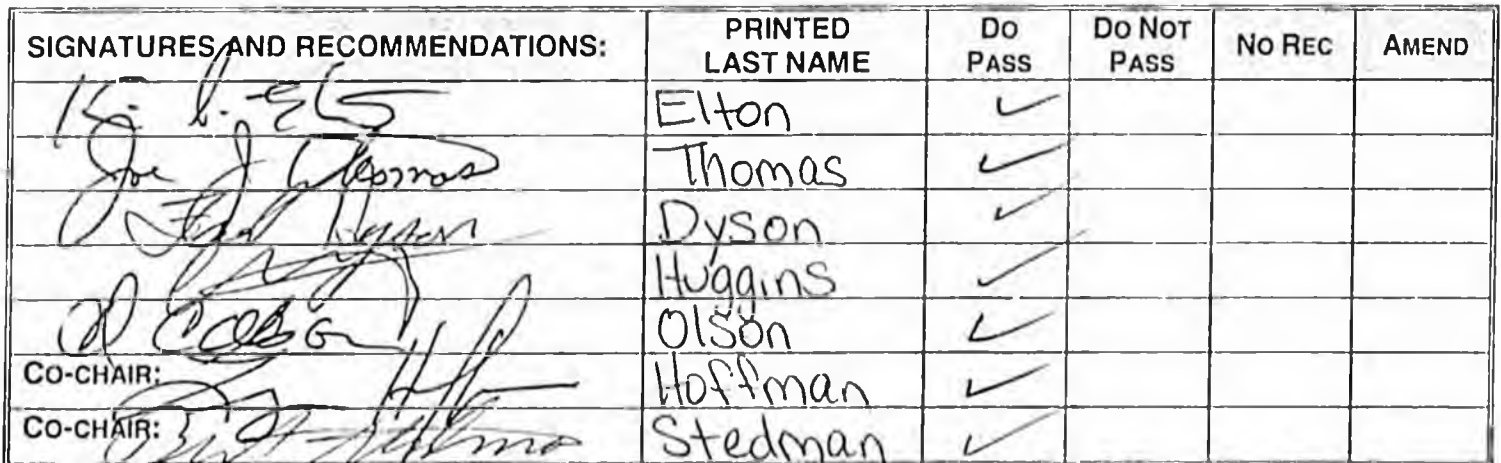 SIGNATURES AND RECOMMENDATIONS: PRINTED LAST NAME DO PASS DO NOT PASS NO REC AMEND
Elton ✓
Joe J Thomas Thomas ✓
Fred Dyson Dyson ✓
Huggins ✓
Olson ✓
CO-CHAIR: Hoffman ✓
CO-CHAIR: Stedman ✓